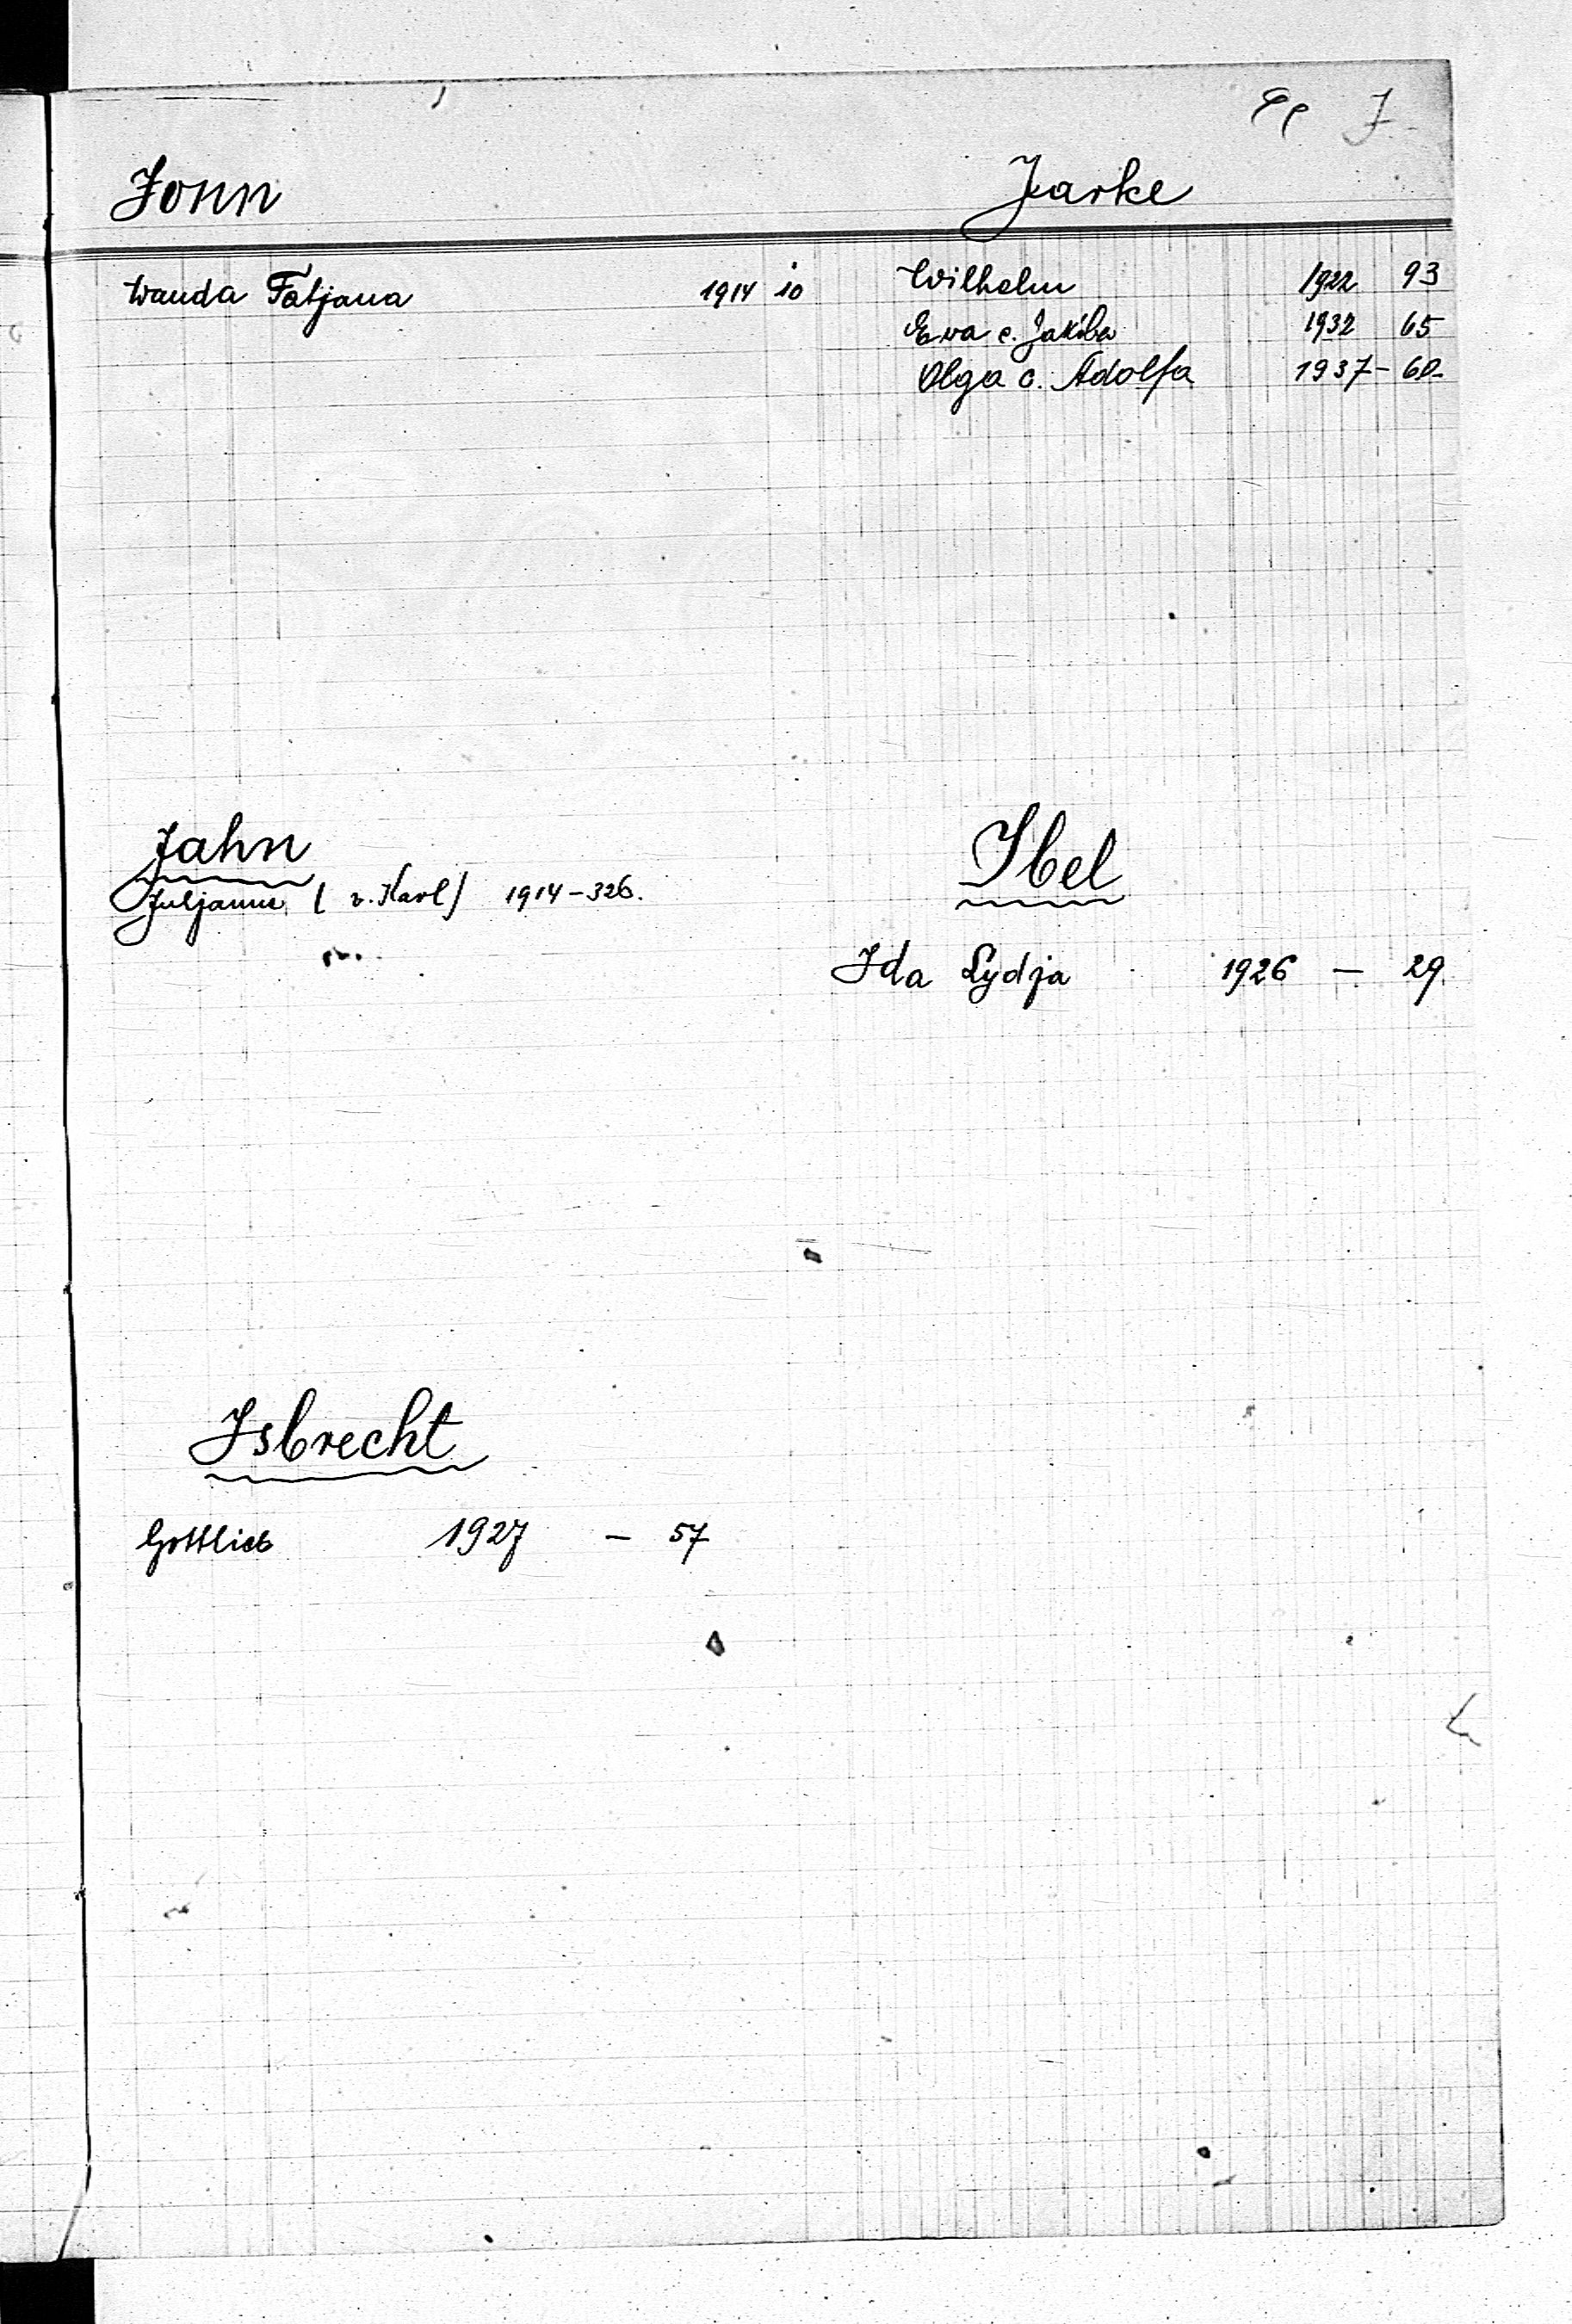 J
Jonn
Wanda Tatjana 1914 10
Jarke
Wilhelm 1922 93
Ewa c. Jakóba 1932 65
Olga c. Adolfa 1937 - 60.
Jahn
Juljanna (v. Karl) 1914 - 326.
Ibel
Ida Lydja 1926 - 29.
Isbrecht
Gottlieb 1927 - 57